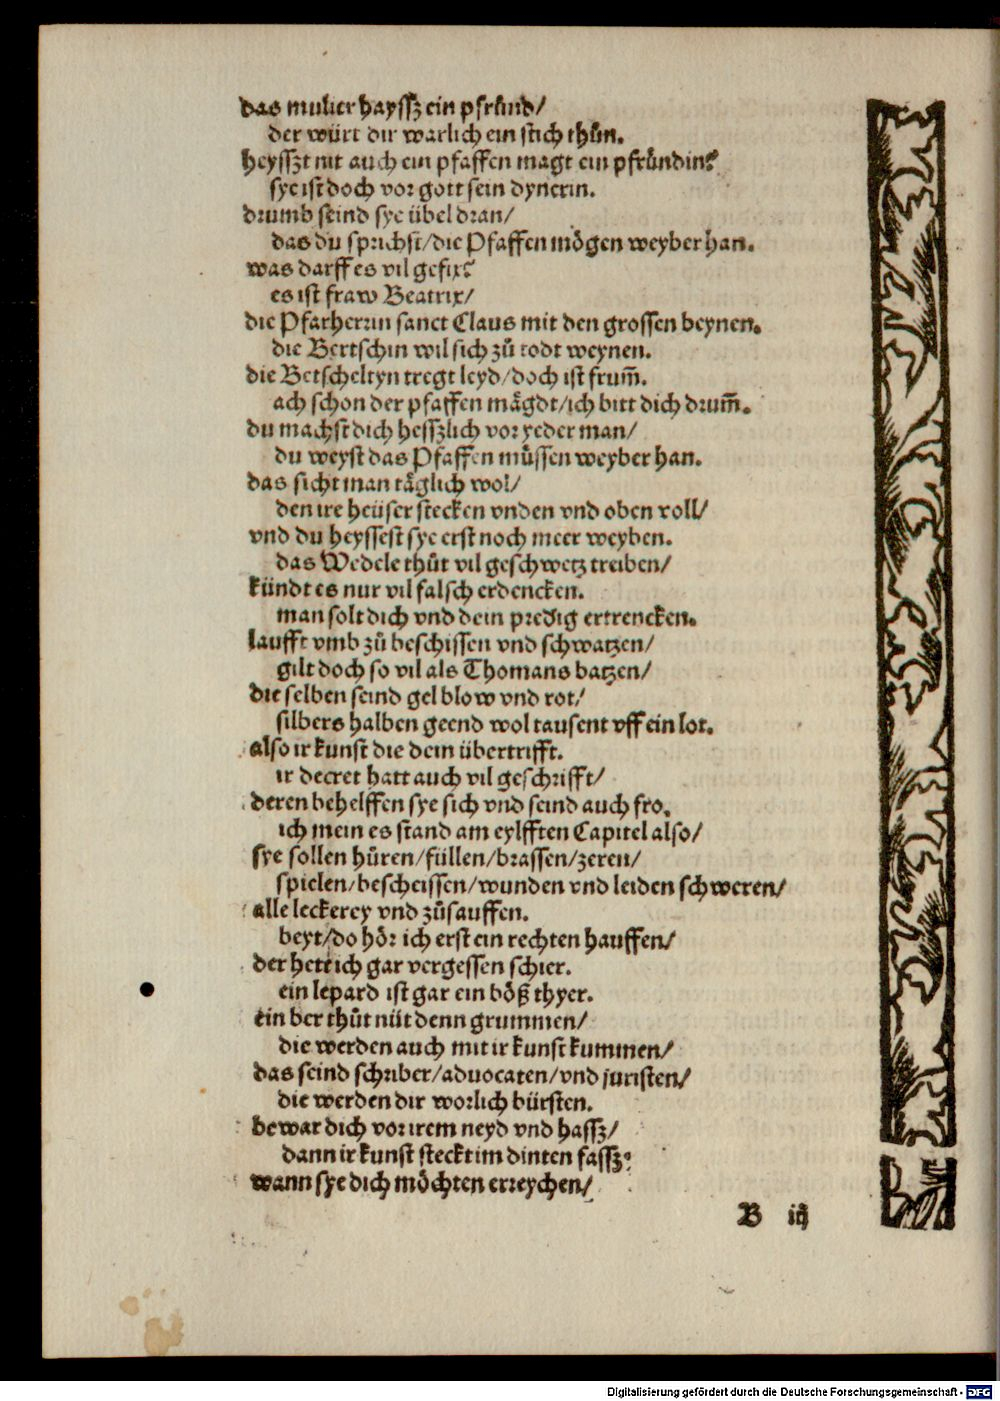 das mulier hayssz ein pfründ/
der würt dir warlich ein stich thůn.
heysszt nit auch ein pfaffen magt ein pfründin?
sye ist doch vor gott sein dynerin.
drumb seind sye übel dran/
das du sprichst/die Pfaffen mögen weyber han.
was darff es vil gefix?
es ist fraw Beatrix/
die Pfarherrin sanct Claus mit den grossen beynen.
die Bertschin wil sich zů todt weynen.
die Betscheltyn tregt leyd/doch ist frum̃.
ach schon der pfaffen mägdt/ich bitt dich drum̃.
du machst dich hesszlich vor yeder man/
du weyst das Pfaffen müssen weyber han.
das sicht man täglich wol/
den ire heüser stecken vnden vnd oben voll/
vnd du heyssest sye erst noch meer weyben.
das Wedele thůt vil geschwetz treiben/
kündt es nur vil falsch erdencken.
man solt dich vnd dein predig ertrencken.
laufft vmb zů beschissen vnd schwatzen/
gilt doch so vil als Thomans batzen/
die selben seind gel blow vnd rot/
silbers halben geend wol tausent vff ein lot.
also ir kunst die dein übertrifft.
ir decret hatt auch vil geschrifft/
deren behelffen sye sich vnd seind auch fro.
ich mein es stand am eylfften Capitel also/
sye sollen hůren/füllen/brassen/zeren/
spielen/bescheissen/wunden vnd leiden schweren/
alle leckerey vnd zůsauffen.
beyt/do hör ich erst ein rechten hauffen/
der hett ich gar vergessen schier.
ein lepard ist gar ein böß thyer.
ein ber thůt nüt denn grummen/
die werden auch mit ir kunst kummen/
das seind schriber/advocaten/vnd juristen/
die werden dir worlich bürsten.
bewar dich vor irem neyd vnd hassz/
dann ir kunst steckt im dinten fassz.
wann sye dich möchten erreychen/
B iij
Digitalisierung gefördert durch die Deutsche Forschungsgemeinschaft - DFG